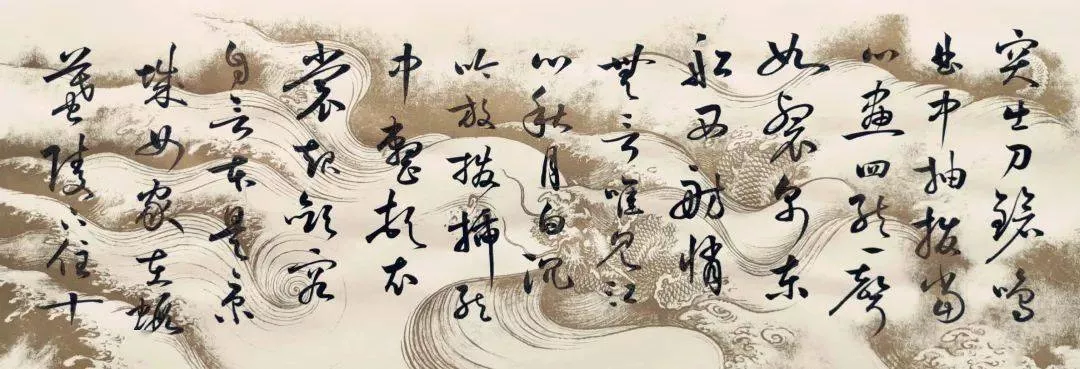 突出刀鎗鳴
曲中抽撥當
心畫四絃一聲
如裂帛東
舩西舫悄
無言唯見江
心秋月白沉
吟放撥插絃
中整頓衣
裳起斂容
自言本是京
城女家在蝦
蟇陵下住十